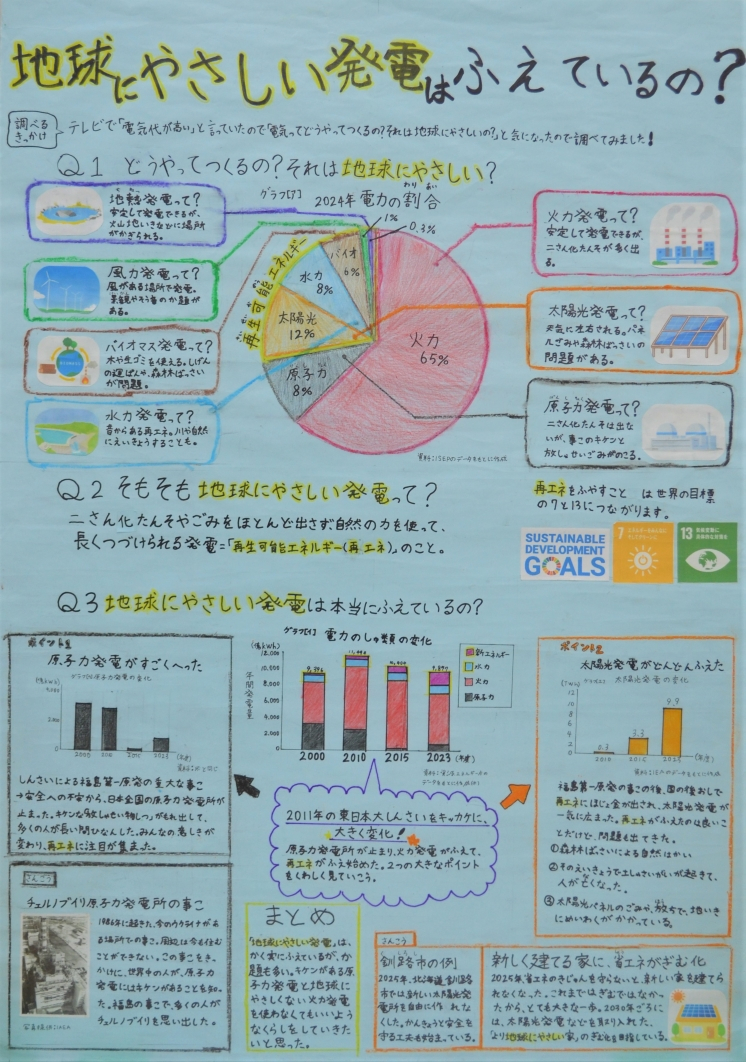 地球にやさしい発電はふえているの?
調べる
きっかけ
テレビで「電気代が高い」と言っていたので「電気ってどうやってつくるの?それは地球にやさしいの?」と気になったので調べてみました!
Q1 どうやってつくるの?それは地球にやさしい?
グラフ[ア]
2024年電力の割合
わりあい
1%
0.3%
バイオ
6%
水力
8%
太陽光
12%
原子力
8%
火力
65%
再生可能エネルギー
地熱発電って?
安定して発電できるが、
火山地いきなどに場所
がかぎられる。
風力発電って?
風がある場所で発電。
景観やそう音のか題が
ある。
バイオマス発電って?
木や生ゴミを使える。しげん
の運ぱんや、森林ばっさい
が問題。
水力発電って?
昔からある再エネ。川や自然
にえいきょうすることも。
火力発電って?
安定して発電できるが、
二さん化たんそが多く出
る。
太陽光発電って?
天気に左右される。パネ
ルごみや森林ばっさいの
問題がある。
原子力発電って?
二さん化たんそは出な
いが、事このキケンと
放しゃせいごみがのこる。
Q2 そもそも地球にやさしい発電って?
二さん化たんそやごみをほとんど出さず自然の力を使って、
長くつづけられる発電=「再生可能エネルギー(再エネ)」のこと。
再エネをふやすこと は世界の目標
の7と13につながります。
SUSTAINABLE
DEVELOPMENT
GOALS
7
13
Q3 地球にやさしい発電は本当にふえているの?
ポイント1
原子力発電がすごくへった
(年度)
しんさいによる福島第一原発の重大な事こ
→安全への不安から、日本全国の原子力発電所が
止まった。キケンな放しゃせい物しつがもれ出して、
多くの人が長い間ひなんした。みんなの考え方が
変わり、再エネに注目が集まった。
グラフ[イ] 電力のしゅ類の変化
(億kWh)
年間発電量
12,000
10,000
8,000
6,000
4,000
2,000
0
2000
2010
2015
2023
(年度)
新エネルギー
水力
火力
原子力
2011年の東日本大しんさいをキッカケに、
大きく変化!
原子力発電所が止まり、火力発電がふえて、
再エネがふえ始めた。2つの大きなポイント
をくわしく見ていこう。
ポイント2
太陽光発電がどんどんふえた
太陽光発電の変化
12
10
8
6
4
2
0
0.3
3.3
9.9
(年度)
福島第一原発の事この後、国の後おしで
再エネにほじょ金が出され、太陽光発電が
一気に広まった。再エネがふえたのは良い
ことだけど、問題も出てきた。
①森林ばっさいによる自然はかい
②そのえいきょうで土しゃさいがいが起きて、
人が亡くなった。
③太陽光パネルのごみや、放ちで、地いき
にめいわくがかかっている。
さんこう
チェルノブイリ原子力発電所の事こ
1986年に起きた、今のウクライナがあ
る場所での事こ。周辺は今も住む
ことができない。この事こをき
かけに、世界中の人が、原子力
発電にはキケンがあることを知っ
た。福島の事こで、多くの人が
チェルノブイリを思い出した。
まとめ
「地球にやさしい発電」は、
かく実にふえているが、か
題も多い。キケンがある原
子力発電と地球に
やさしくない火力発電
を使わなくてもいいよう
なくらしをしていきた
いと思った。
さんこう
釧路市の例
2025年、北海道釧路
市では新しい太陽光発
電所を自由に作れ
なくした。かんきょうと安全を
守る工夫も始まっている。
新しく建てる家に、省エネがぎむ化
2025年、省エネのきじゅんを守らないと、新しい家を建てら
れなくなった。これまではぎむではなか
ったから、とても大きな一歩。2030年ごろに
は、太陽光発電などを取り入れた、
「より地球にやさしい家」のぎむ化を目指している。